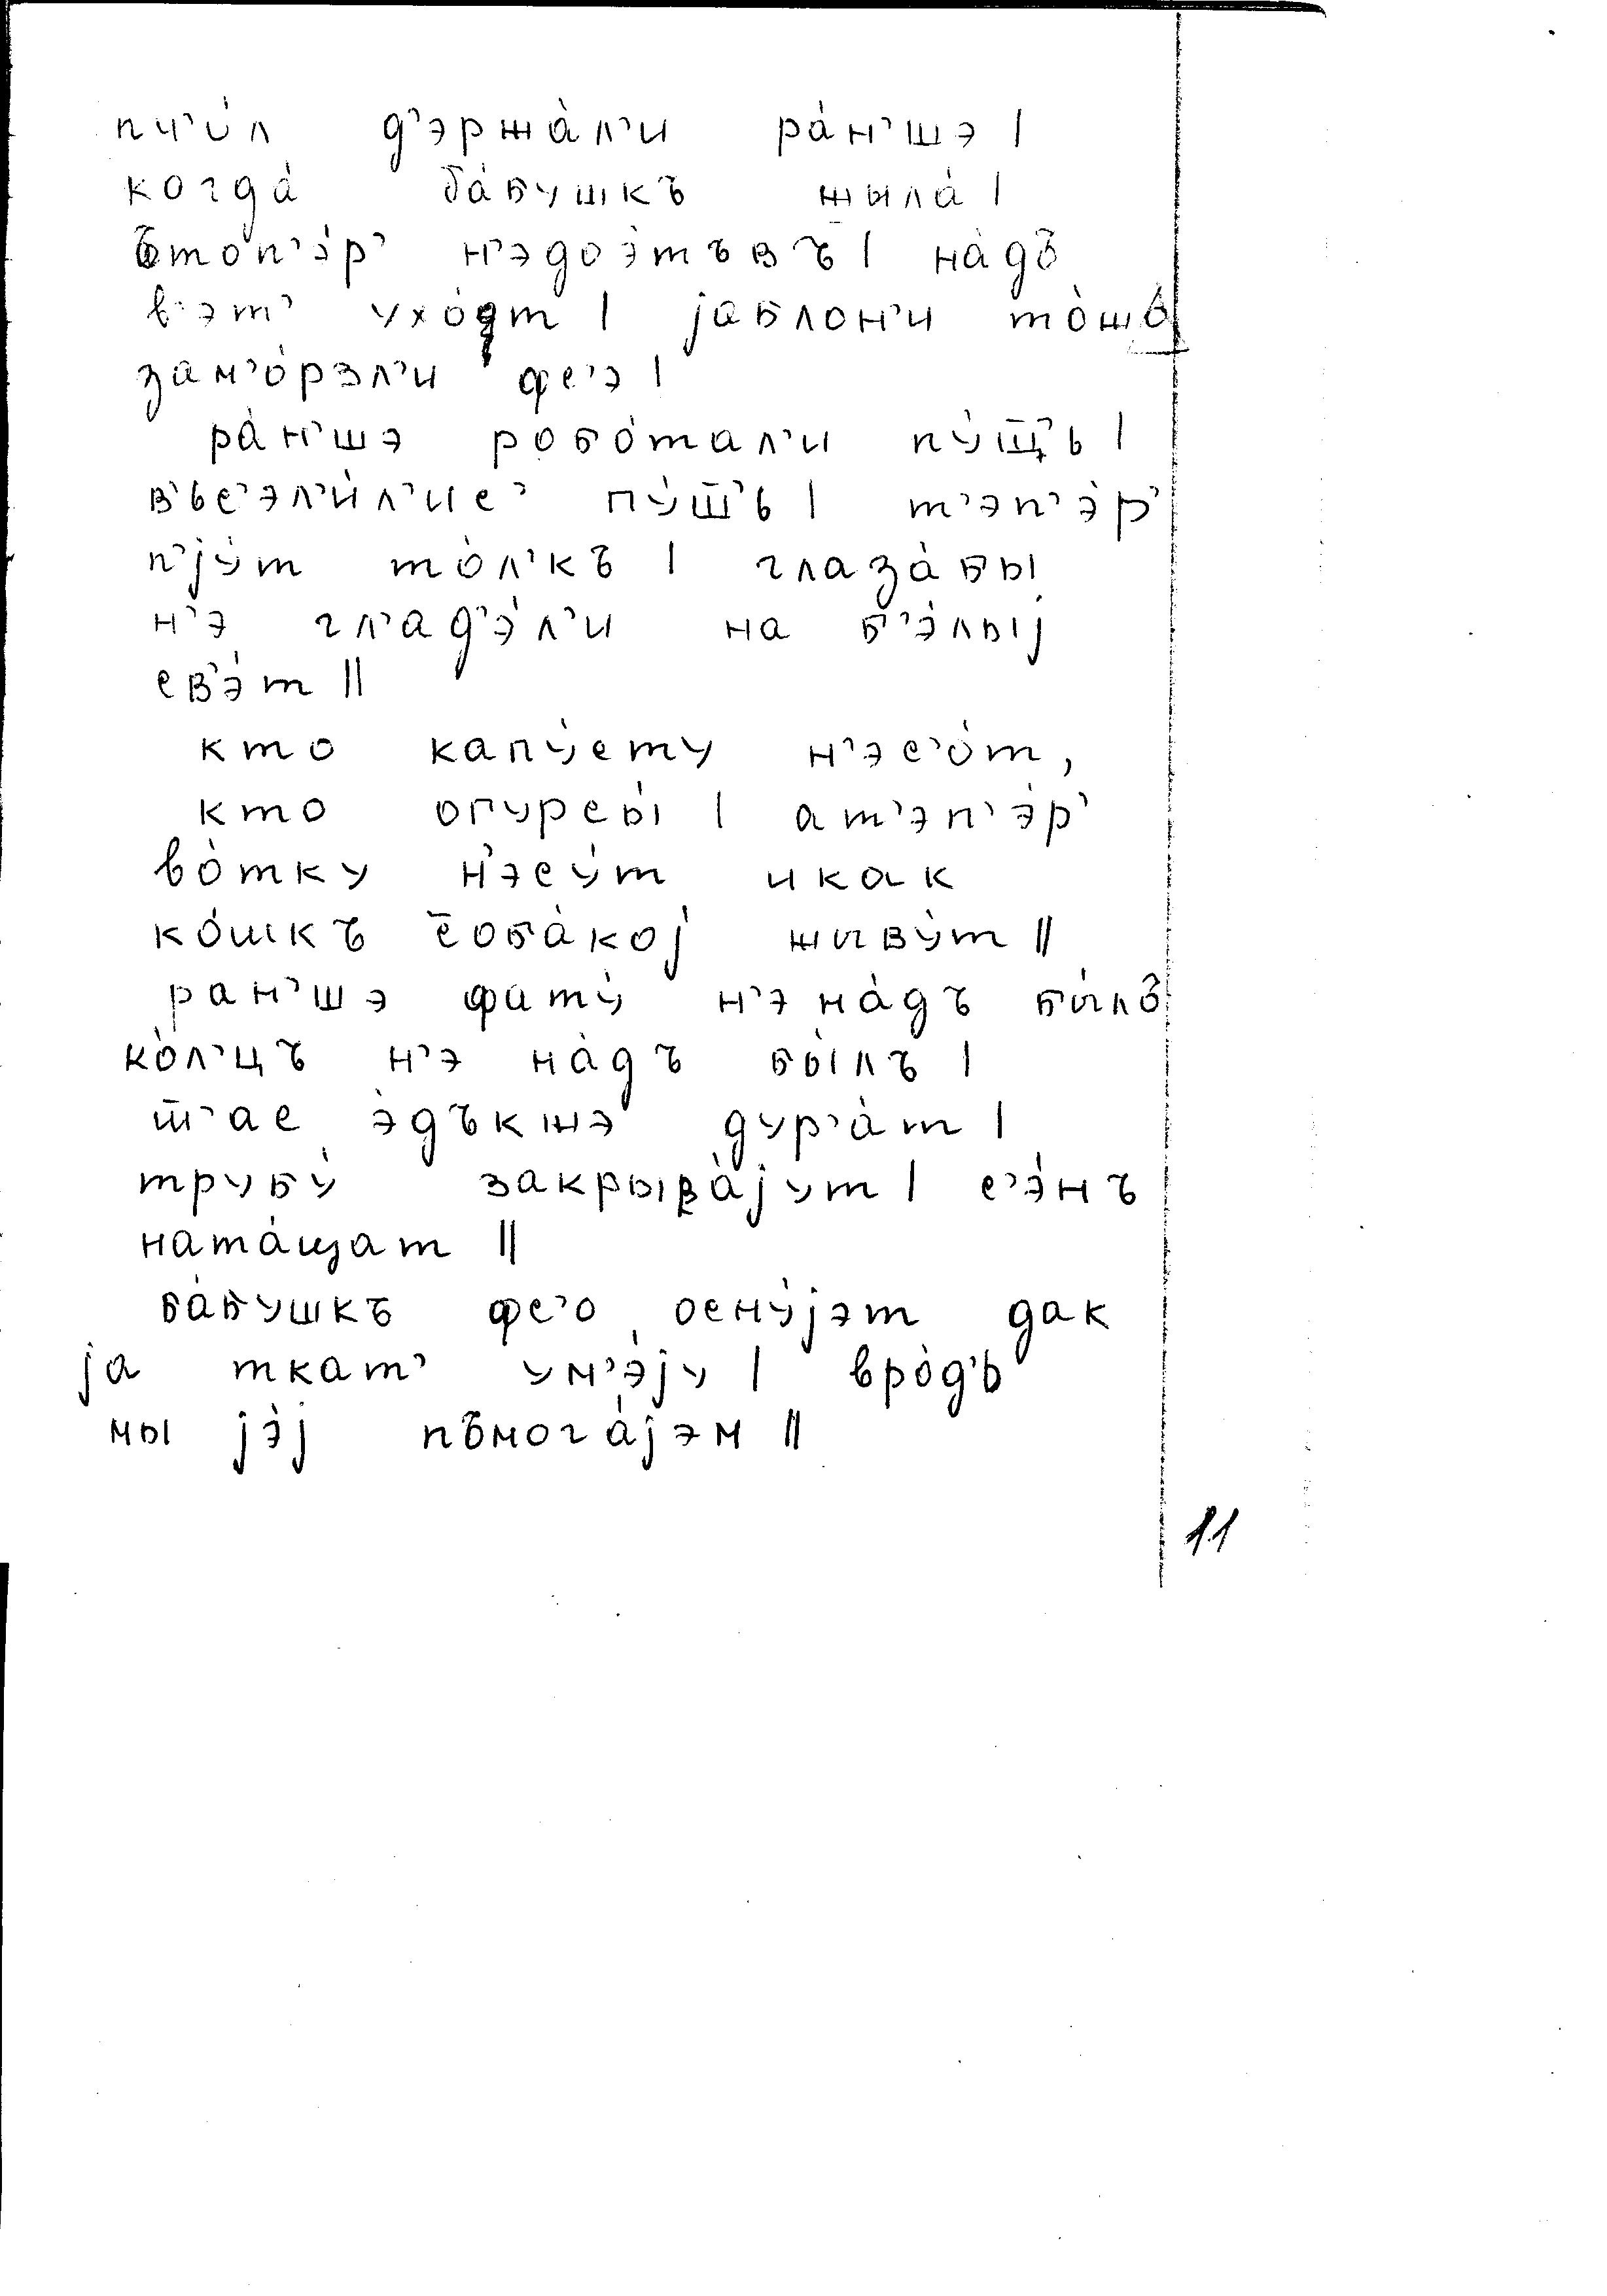 пч’о́л д’эржа́л’и ра́н’шэ |
когда́ ба́бушкъ жыла́ |
ътоп’э́р’ н’эдоэ́тъвъ | на́дъ
в’эт’ ухо́дт | jаблон’и то́шъ
зам’о́рзл’и фс’э |
ра́н’шэ робо́тал’и пу́ш̅’ь |
в’ьс’эл’и́л’ис’ пу́ш̅’ь | т’эп’э́р’
п’jу́т то́л’къ | глаза́бы
н’э гл’ад’э́л’и на б’э́лыj
св’э́т ||
кто капу́сту н’эс’о́т,
кто огурсы́ | ат’эп’э́р’
во́тку н’эсу́т икак
ко́шкъ с̅оба́коj жыву́т ||
ран’шэ фату́ н’э на́дъ бы́лъ
ко́л’цъ н’э на́дъ бы́лъ |
ш̅’ас э́дъкжэ дур’а́т |
трубу́ закрыва́jут | с’э́нъ
ната́щат ||
ба́бушкъ фс’о осну́jэт дак
jа ткат’ ум’э́jу | вро́д’ь
мы jэ́j пъмога́jэм ||
11